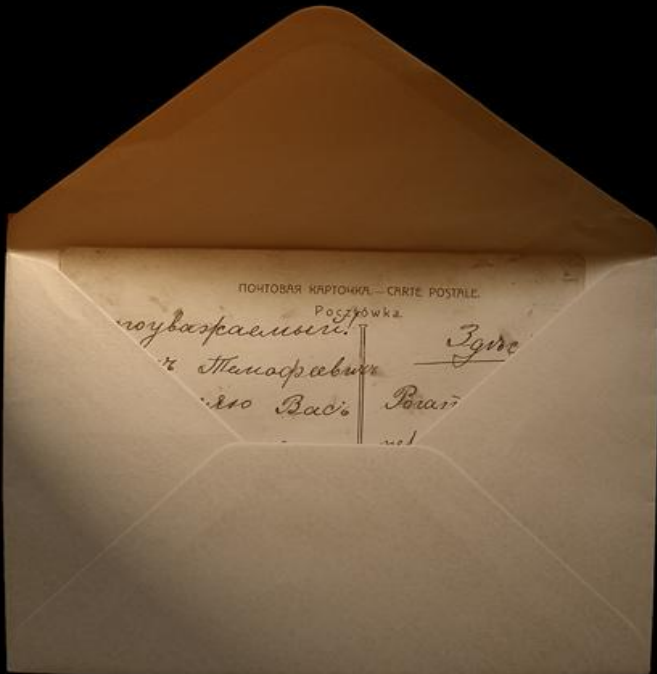 ПОЧТОВАЯ КАРТОЧКА.—CARTE POSTALE.
Pocztówka.
ноуважаемый!
ъ Тимофеевичъ
ляю Васъ
Здѣс
Рогат